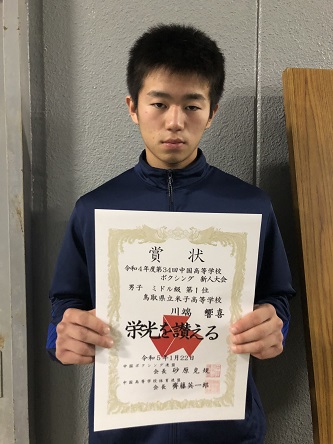 賞状
令和4年度第34回中国高等学校
ボクシング 新人大会
男子 ミドル級 第1位
鳥取県立米子高等学校
川端 響喜
栄光を讃える
令和5年1月22日
中国ボクシング連盟
会長 砂原克規
中国高等学校体育連盟
会長 齊藤英一郎